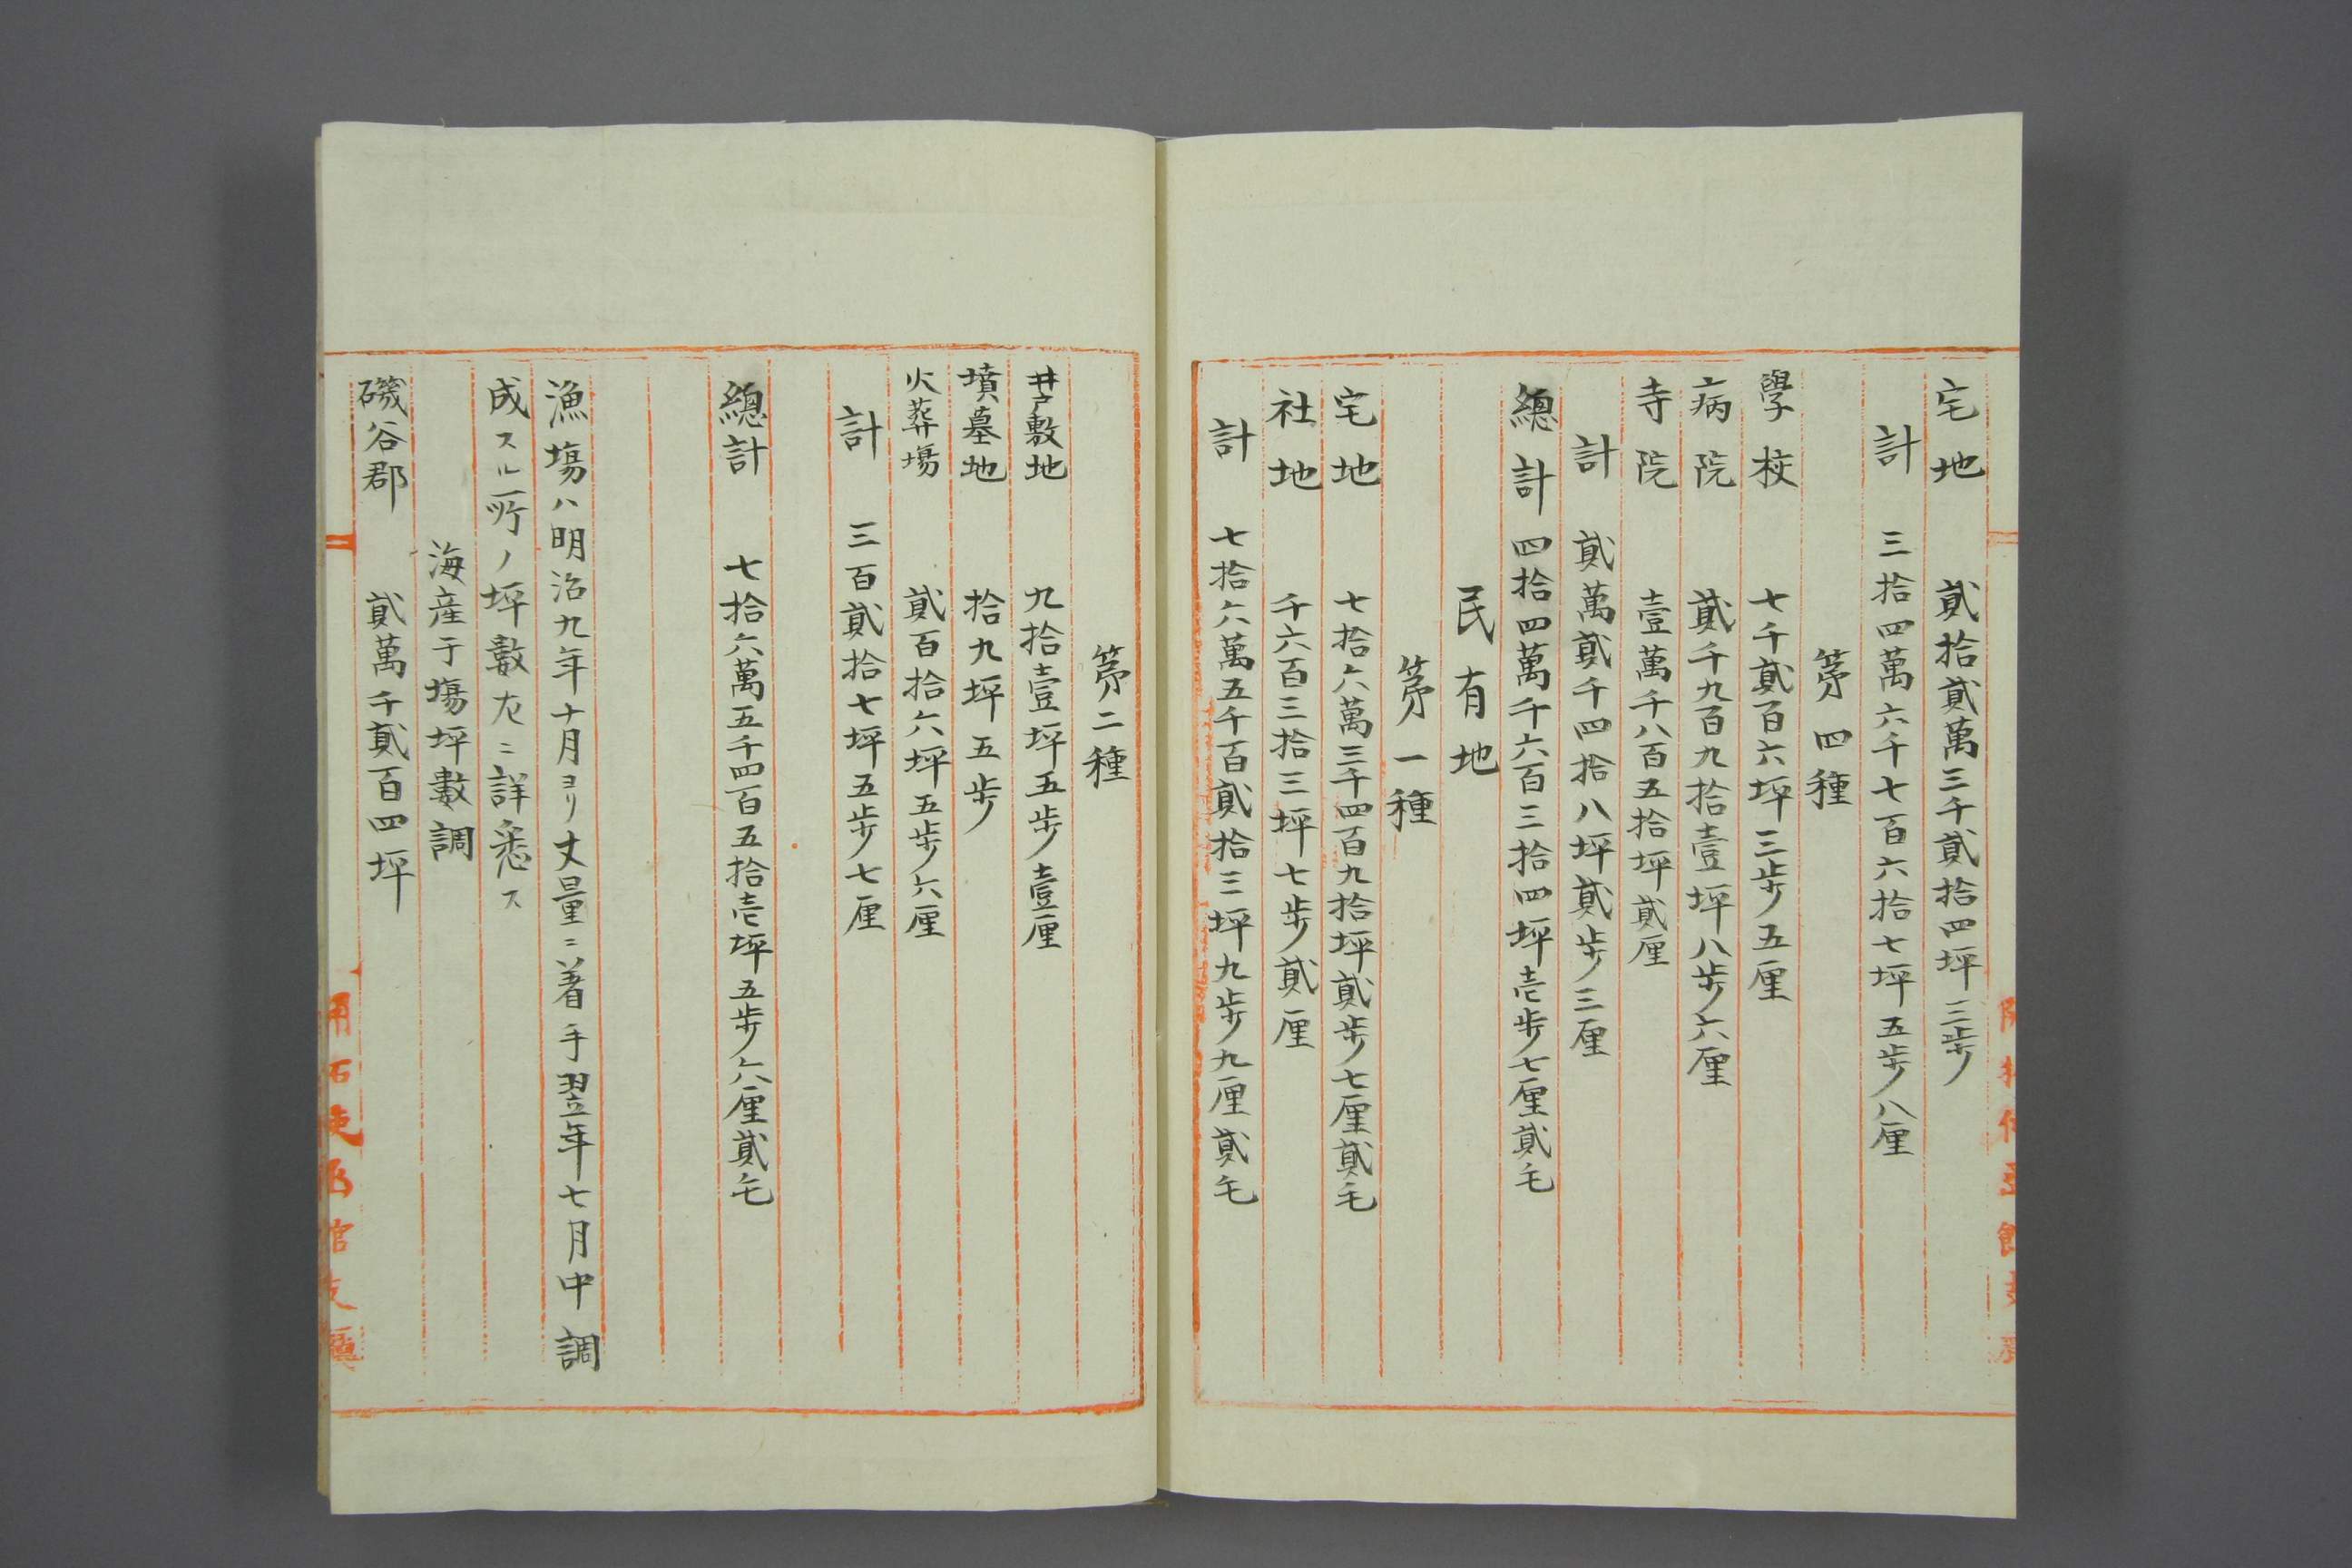 宅地 貳拾貳萬三千貳拾四坪三步
計 三拾四萬六千七百六拾七坪五步八厘
第四種
學校 七千貳百六坪三步五厘
病院 貳千九百九拾壹坪八步六厘
寺院 壹萬千八百五拾坪貳厘
計 貳萬貳千四拾八坪貳步三厘
總計 四拾四萬千六百三拾四坪壱步七厘貳毛
民有地
第一種
宅地 七拾六萬三千四百九拾坪貳步七厘貳毛
社地 千六百三拾三坪七步貳厘
計 七拾六萬五千百貳拾三坪九步九厘貳毛
第二種
井戸敷地 九拾壹坪五步壹厘
墳墓地 拾九坪五步
火葬場 貳百拾六坪五步六厘
計 三百貳拾七坪五步七厘
總計 七拾六萬五千四百五拾壱坪五步六厘貳毛
漁場ハ明治九年十月ヨリ丈量ニ着手翌年七月中調
成スル所ノ坪數左ニ詳悉ス
海産干場坪數調
磯谷郡 貳萬千貳百四坪
開拓使函館支廳